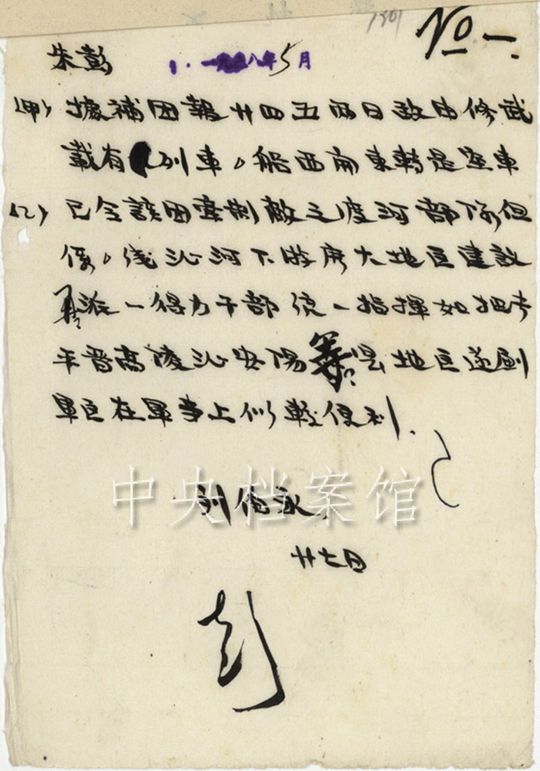 1801
No一
朱彭
一九三八年5月
(甲)據補团報廿四五两日敌由修武
載有列車。船西南東轉是空車
(乙)已令該团牽制敵之渡河部隊但
係。綫沁河下游廣大地区建設
派一得力干部統一指揮如把
平晋高陵沁安陽等县地区
軍区在軍事上似較便利.
刘伯承
廿七日
彭
中央档案馆